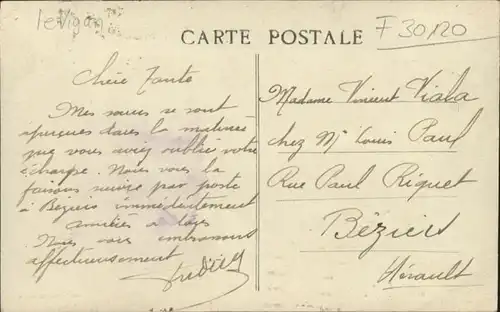 le Vigan
F 30120
CARTE POSTALE
Chère Tante
Mes sœurs se sont
aperçues dans la matinée
que vous aviez oublié votre
écharpe. Nous vous la
faisons suivre par poste
à Béziers immédiatement
amitiés à tous
Nous vous embrassons
affectueusement
Madame Vincent Viala
chez Mr Louis Paul
Rue Paul Riquet
Béziers
Hérault